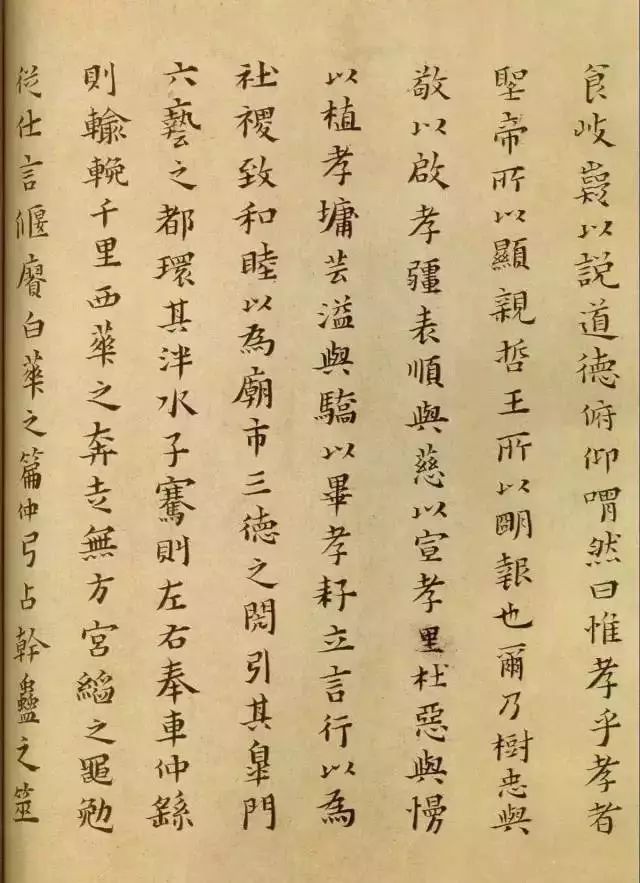 食岐嶷以説道德俯仰喟然曰惟孝乎孝者
聖帝所以顯親哲王所以明報也爾乃樹忠與
敬以啟孝疆表順與慈以宣孝里杜惡與慢
以植孝墉芸溢與驕以畢孝耔立言行以為
社稷致和睦以為廟市三德之閎引其皐門
六藝之都環其泮水子騫則左右奉車仲繇
則輸輓千里西華之奔走無方宮縚之黽勉
從仕言偃賡白華之篇仲弓占幹蠱之筮